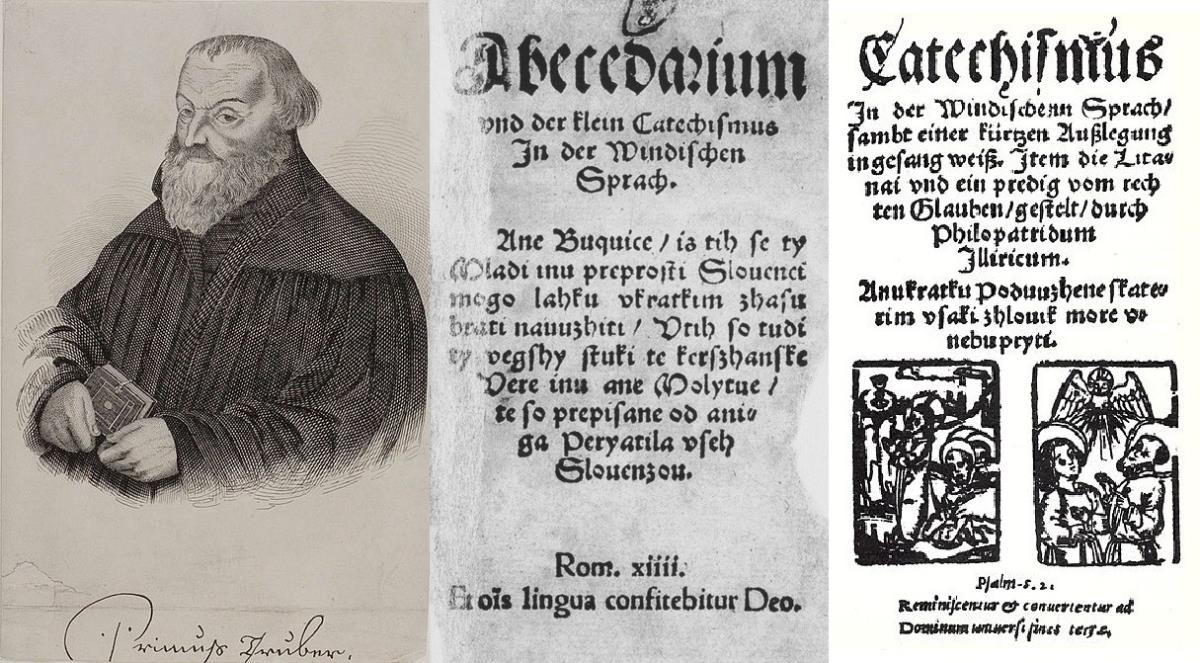 Primuß Truber.
Abecedarium
vnd der klein Catechismus
In der Windischen
Sprach.
Ane Buquice / is tih se ty
Mladi inu preprosti Slouenci
mogo lahku vkratkim zhasu
brati nauuzhiti / Vtih so tudi
ty vegshy stuki te kerszhanske
Vere inu ane Molytue /
te so prepisane od ani-
ga Peryatila vseh
Slouenzou.
Rom. xiiii.
Et oīs lingua confitebitur Deo.
Catechismus
In der Windischenn Sprach /
sambt einer kürtzen Außlegung
in gesang weiß. Item die Lita-
nai vnd ein predig vom rech
ten Glauben / gestelt / durch
Philopatridum
Illiricum.
Anu kratku Poduuzhene skate-
rim vsaki zhlouik more vo
nebu pryti.
Psalm.
Reminiscentur & conuertentur ad
Dominum uniuersi fines terræ.